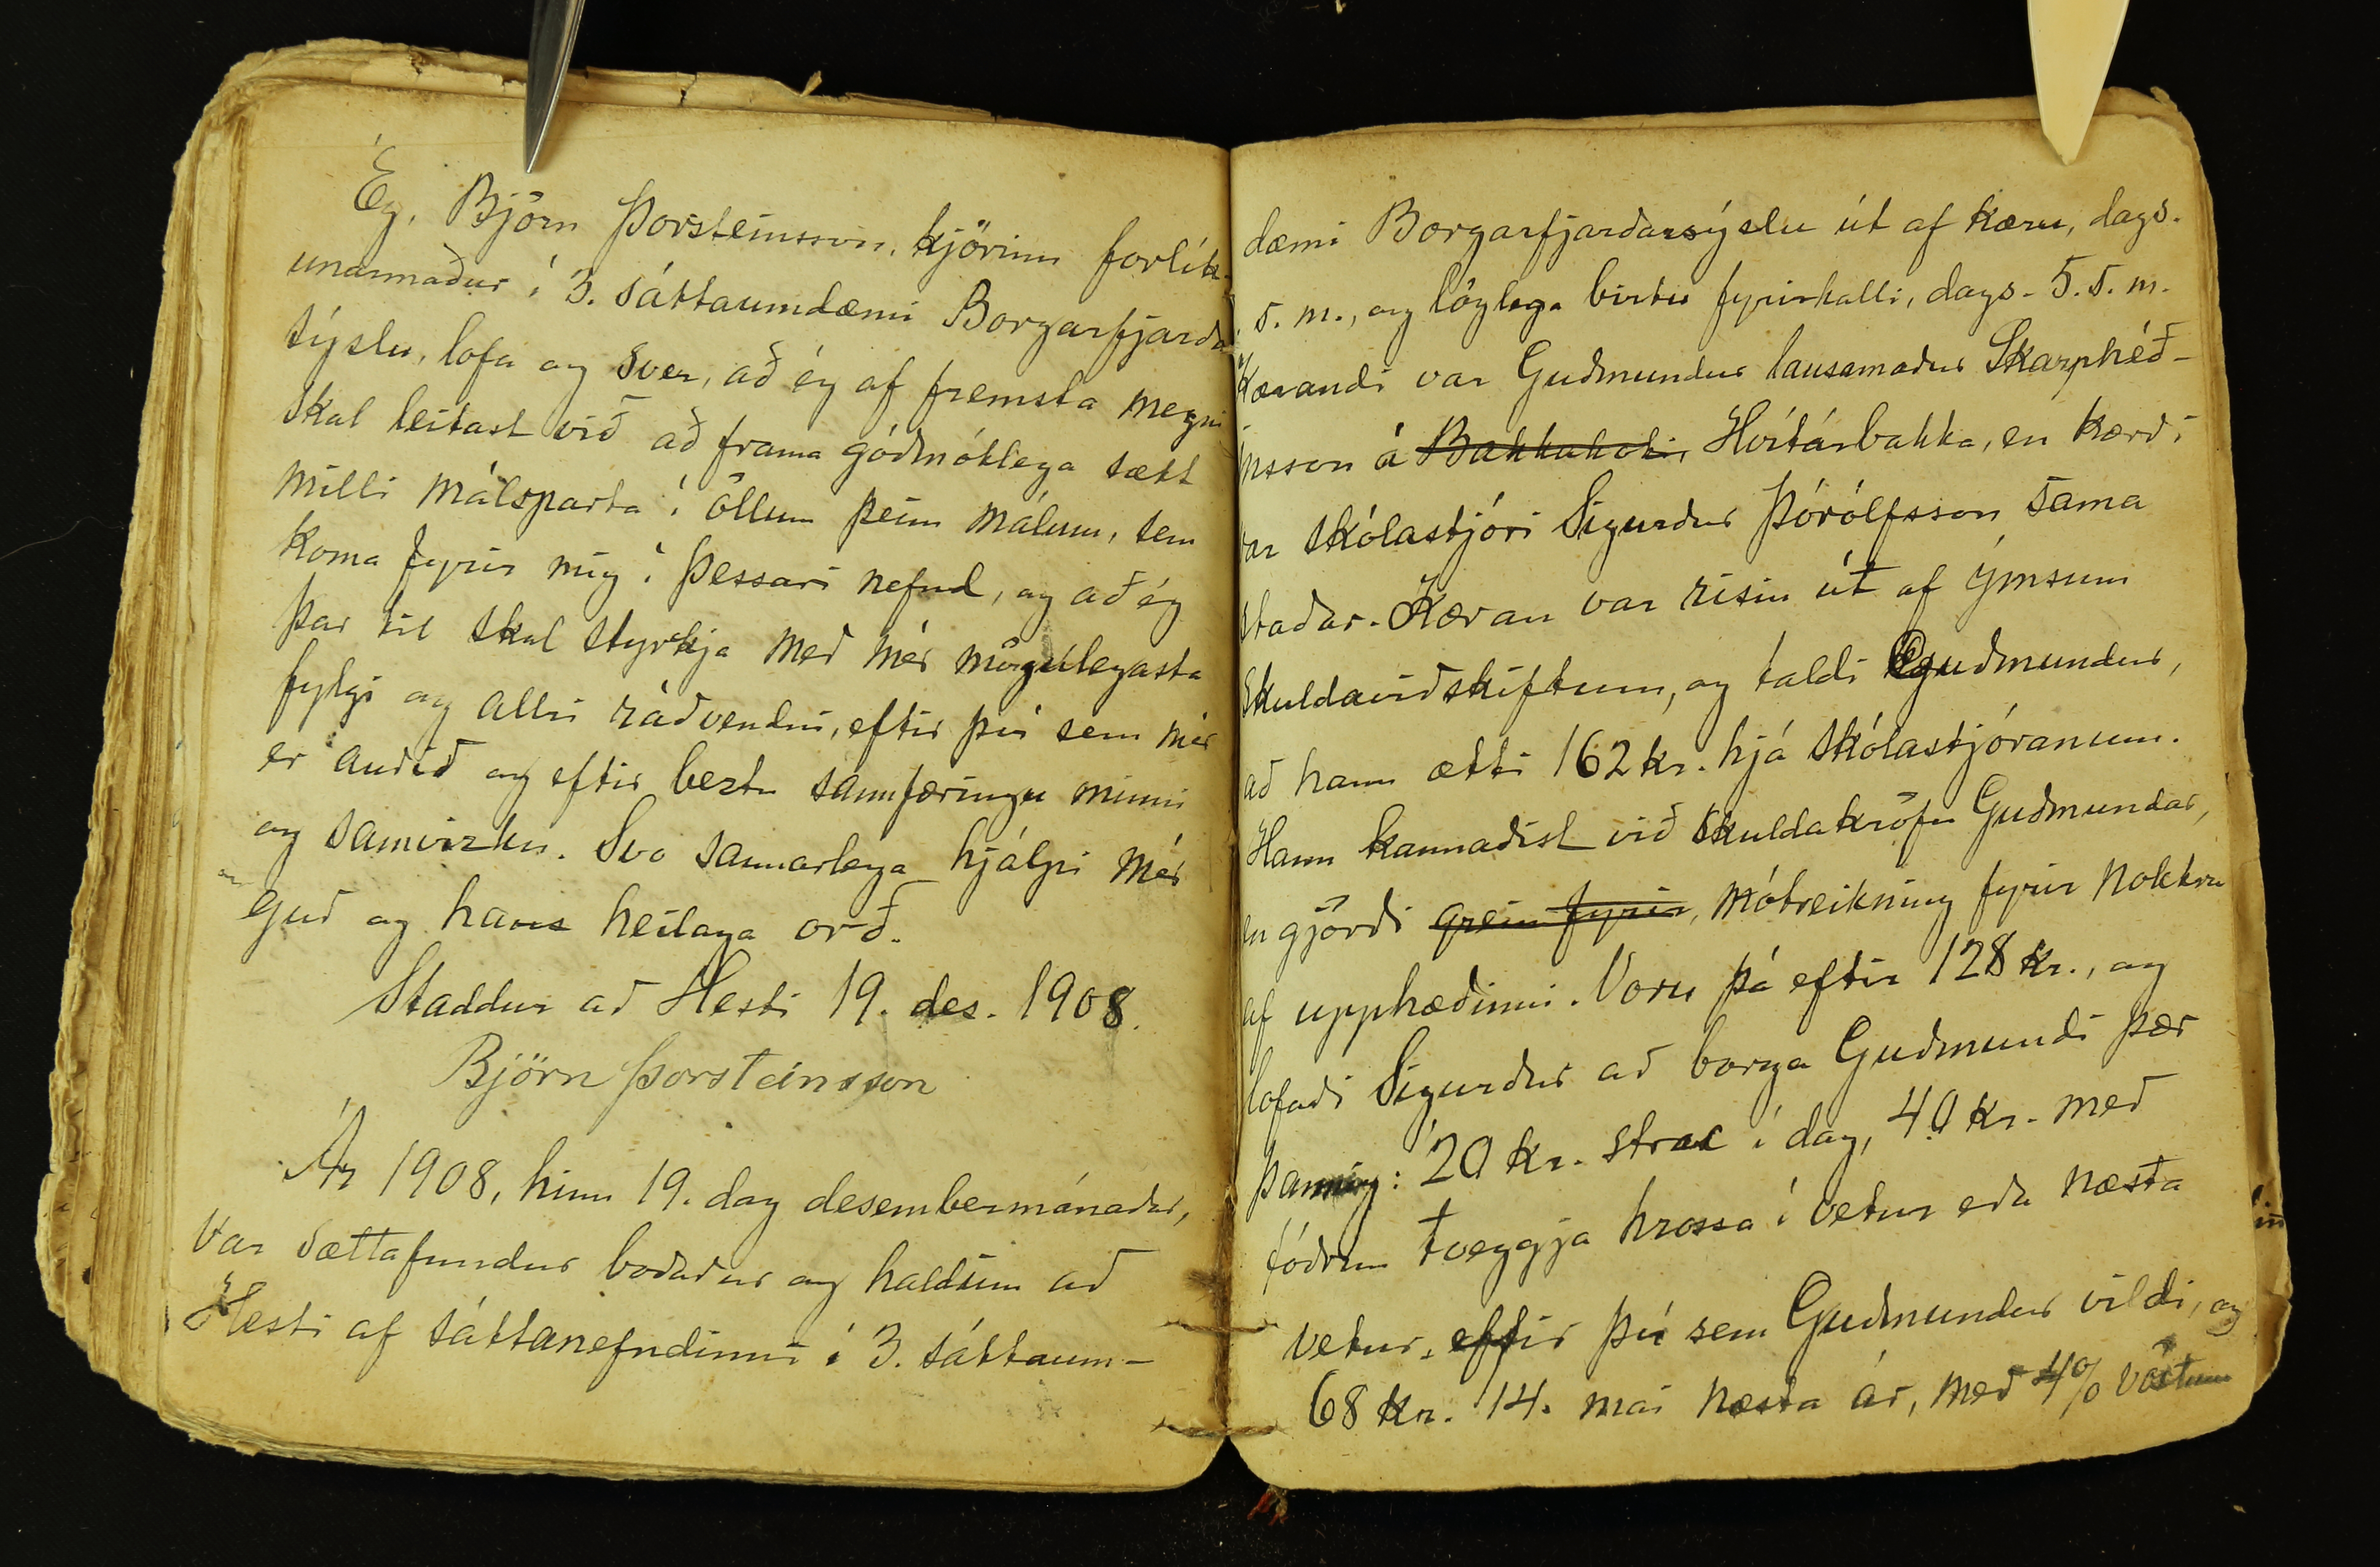 Ég, Björn Þorsteinsson, kjörinn forlík-
unarmaður í 3. sáttaumdæmi Borgarfjarða
sýslu, lofa og sver, að ég af fremsta megni
skal leitast við að frama góðmótlega sætt
milli málsparta í öllum þeim málum, sem
koma fyrir mig í þessari nefnd, og að ég
þar til skal styrkja með mér mögulegasta
fylgi og allri ráðvendni, eftir því sem mér
er auðið og eftir beztu sannfæringu minni
og samvizku. Svo sannarlega hjálpi mér
guð og hans heilaga orð.
Staddur að Hesti 19. des. 1908.
Björn Þorsteinsson
Ár 1908, hinn 19. dag desembermánaðar,
var sættafundur boðaður og haldinn að
Hesti af sáttanefndinni í 3. sáttaum-
dæmi Borgarfjarðarsýslu út af kæru, dags.
s. m., og löglega birtu fyrirkalli, dags. 5. s. m.
Kærandi var Guðmundur lausamaður Skarphéð-
insson á Bakkakoti, Hvítárbakka, en kærði
var skólastjóri Sigurður Þórólfsson sama
staðar. Kæran var risin út af ýmsum
skuldaviðskiftum, og taldi Guðmundur,
að hann ætti 162 kr. hjá skólastjóranum.
Hann kannaðist við skuldakröfu Guðmundar,
en gjörði grein fyrir, mótreikning fyrir nokkru
af upphæðinni. Voru þá eftir 128 kr., og
lofaði Sigurður að borga Guðmundi þær
þannig: 20 kr. strax í dag, 40 kr. með
fóðrun tveggja hrossa í vetur eða næsta
vetur, eftir því sem Guðmundur vildi, og
68 kr. 14. maí næsta ár, með 4% vöxtum